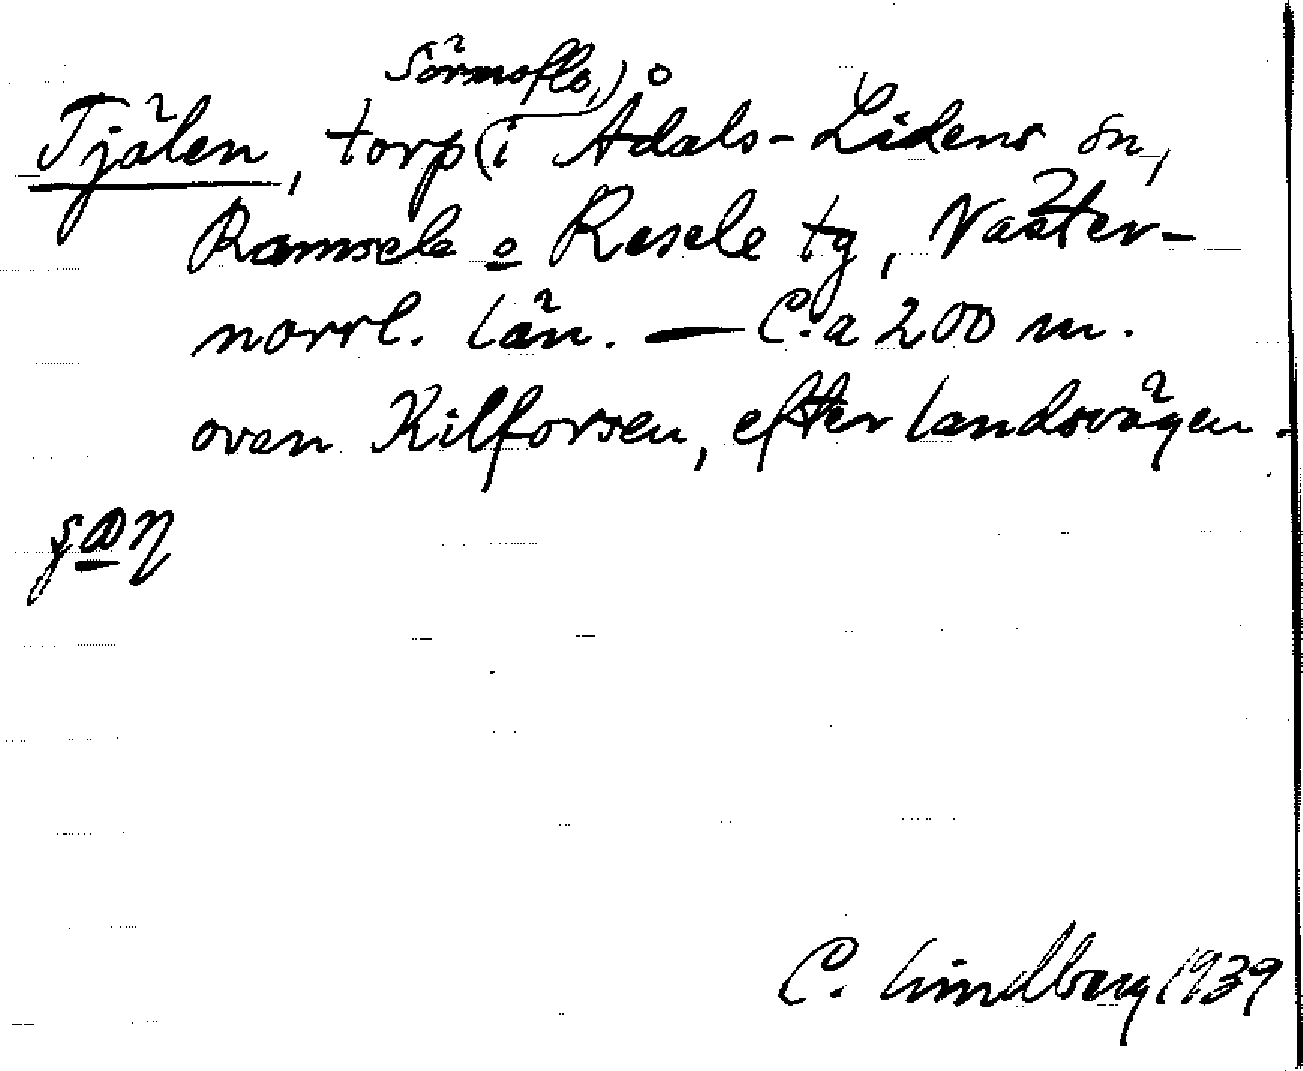 Sörmoflo,
Tjälen, torp i Ådals-Lidens sn,
Ramsele o Resele tg, Väster-
norrl. län. — C:a 200 m.
ovan Kilforsen, efter landsvägen.
C. Lindberg 1939